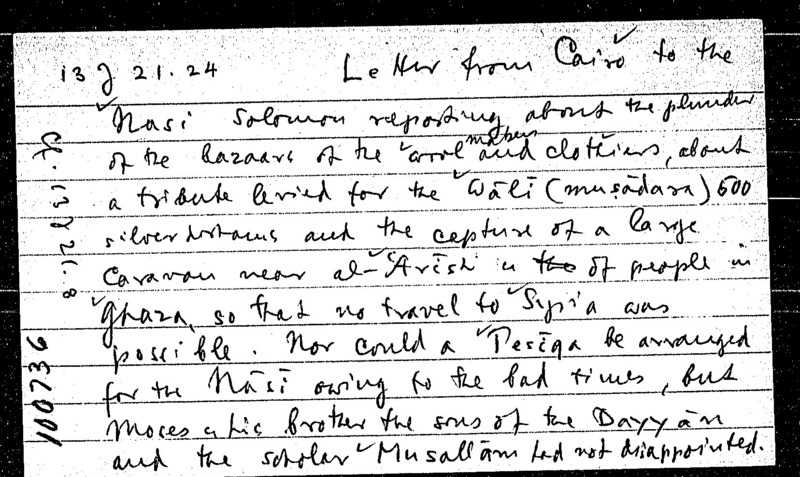 13 J 21.24 Letter from Cairo to the
Nasi Solomon reporting about the plunder
of the bazaars of the wool makers and clothiers, about
a tribute levied for the Wālī (muṣādara) 600
silver dirhams and the capture of a large
Caravan near al-ʿArīsh & the of people in
Ghaza, so that no travel to Syria was
possible. Nor could a Pesīqa be arranged
for the Nāsī owing to the bad times, but
Moses & his brother the sons of the Dayyān
and the scholar Musallam had not disappointed.
cf. 13 J 21.8
100736